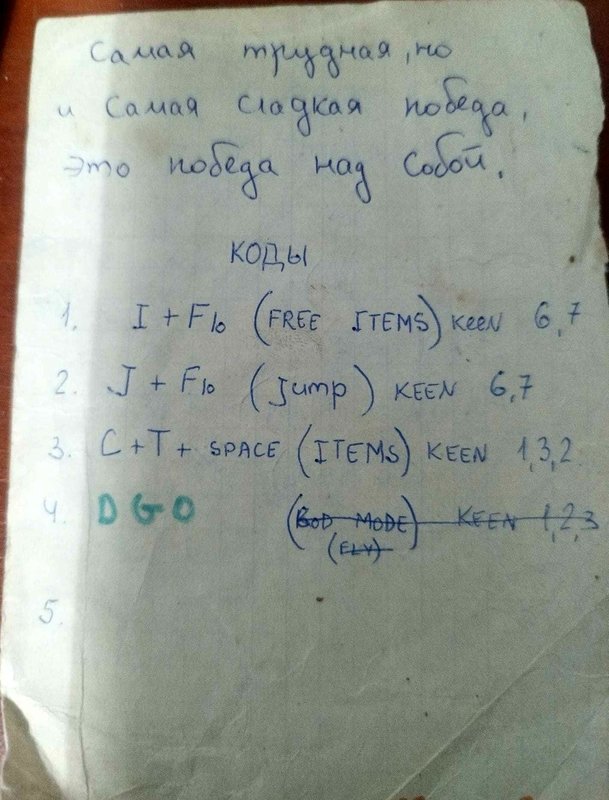 Самая трудная, но
и самая сладкая победа,
это победа над собой.
КОДЫ
1. I + F10 (FREE ITEMS) KEEN 6,7
2. J + F10 (Jump) KEEN 6,7
3. C + T + SPACE (ITEMS) KEEN 1,3,2
4. DGO (GOD MODE) KEEN 1,2,3
(FLY)
5.